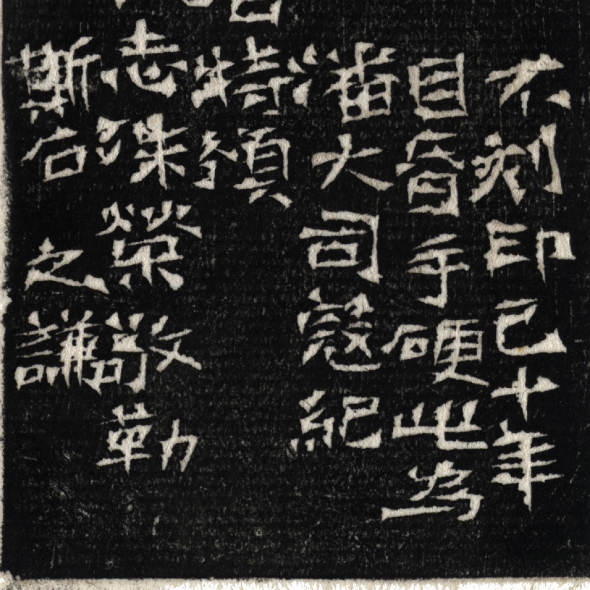 不刻印已十年
目昏手硬此為
潘大司寇紀
特頒
志殊榮敬勒
斯石 之謙